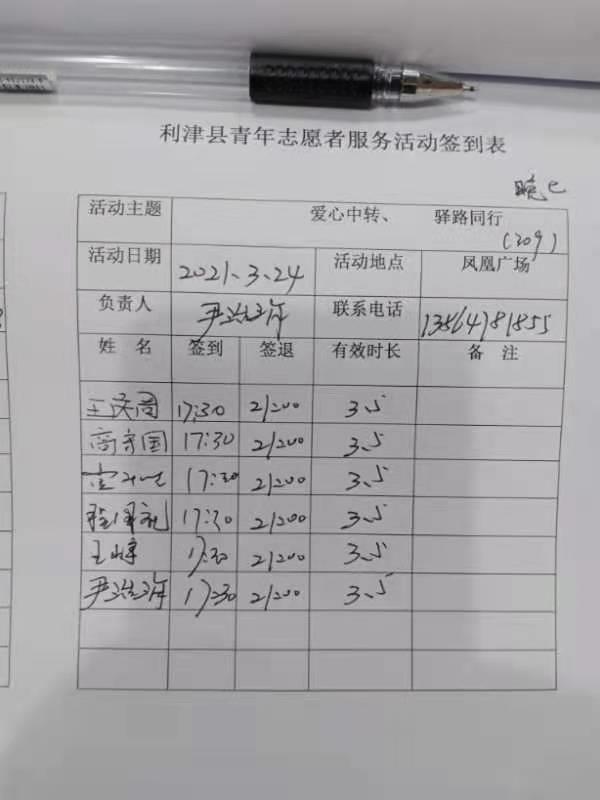 利津县青年志愿者服务活动签到表
晚
活动主题 爱心中转、 驿路同行
(209)
活动日期 2021、3、24 活动地点 凤凰广场
负责人 尹治 联系电话 13864781855
姓 名 签到 签退 有效时长 备 注
王 17:30 21:00 3、5
高守国 17:30 21:00 3、5
17:30 21:00 3、5
17:30 21:00 3、5
王 17:30 21:00 3、5
尹治 17:30 21:00 3、5